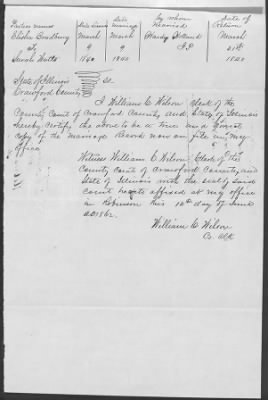 Parties names Date License Date Marriage by whom Married Date of Return
Elisha Bradbury March March March
To 9 9 J.P. 21st
Sarah Watts 1840 1840 1840
State of Illinois
Crawford County SS.
I William C Wilson Clerk of the
County Court of Crawford County and State of Illinois
hereby certify the above to be a true and correct
copy of the Marriage Record now on file in my
office
Witness William C Wilson Clerk of the
County Court of Crawford County and
State of Illinois with the seal of said
Court hereto affixed at my office
in Robinson this 10th day of June
AD 1862
William C Wilson
Co. Clk